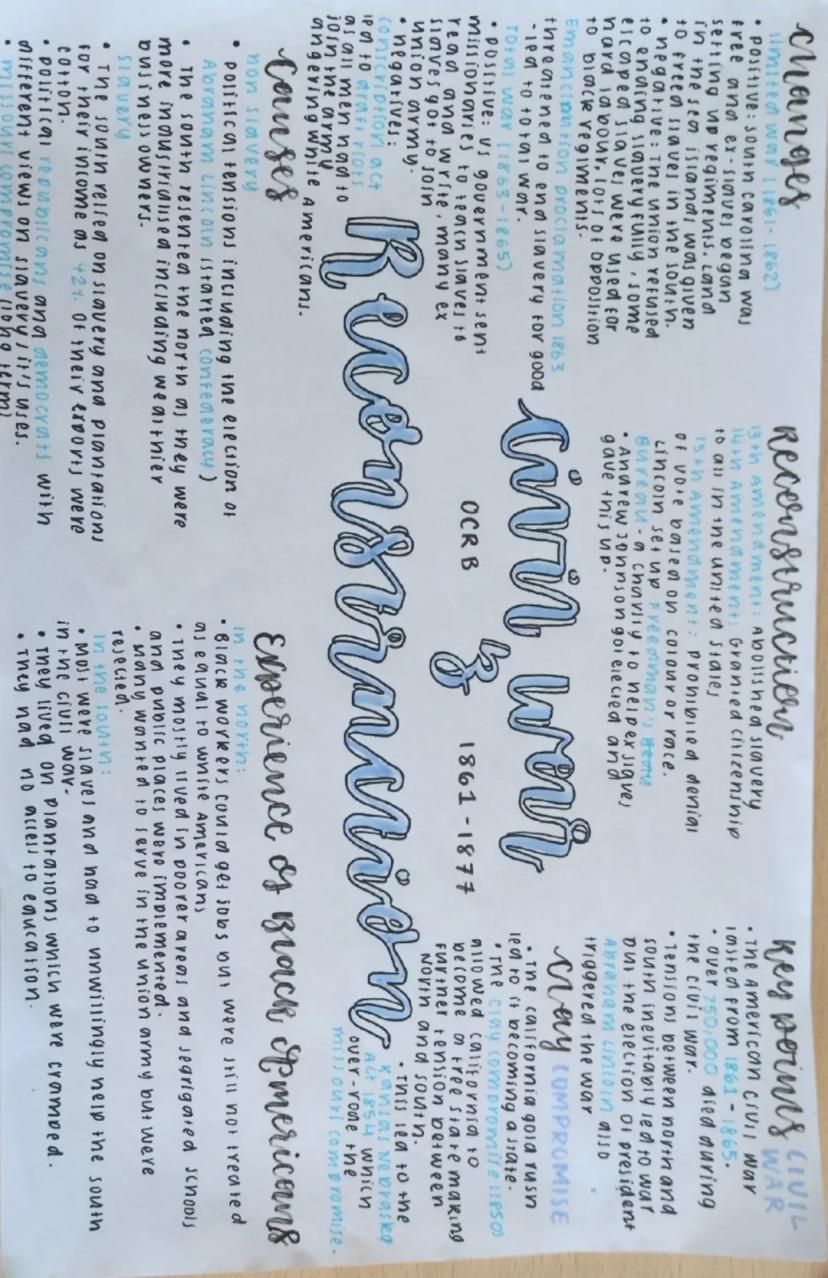 Changes
limited war (1861-1862)
• positive: south carolina was
free and ex-slaves began
setting up regiments. Land
in the sea islands was given
to freed slaves in the south.
• negative: The union refused
to ending slavery fully, some
escaped slaves were used for
hard labour, lots of opposition
to black regiments.
Emancipation proclamation 1863
threatened to end slavery for good
- led to total war.
Total war (1863-1865)
• positive: US government sent
missionaries to teach slaves to
read and write, many ex
slaves got to join
union army.
• negatives:
conscription act
led to draft riots
as all men had to
join the army
angering white Americans.
Reconstruction
13th Amendment: Abolished slavery
14th Amendment: Granted citizenship
to all in the united states
15th Amendment: prohibited denial
of vote based on colour or race.
Lincoln set up Freedman's
Bureau - a charity to help ex slaves
• Andrew Johnson got elected and
gave this up.
Key points CIVIL
WAR
• The American civil war
lasted from 1861 - 1865.
• over 750,000 died during
the civil war.
• Tension between north and
south inevitably led to war
but the election of president
Abraham Lincoln also
triggered the war
Clay COMPROMISE
• The california gold rush
led to it becoming a state.
• The clay compromise (1850)
allowed california to
become a free state making
further tension between
North and south.
• This led to the
Kansas Nebraska
Act 1854 which
over-rode the
missouri compromise.
Civil War
OCR B & 1861-1877
Reconstruction
Causes
non slavery
• political tensions including the election of
Abraham Lincoln (started confederacy)
• The south resented the north as they were
more industrialised including wealthier
business owners.
Slavery
• The south relied on slavery and plantations
for their income as 42% of their exports were
cotton.
• Political republicans and democrats with
different views on slavery / it's uses.
• missouri compromise (long term)
Experience of Black Americans
in the north:
• Black workers could get jobs but were still not treated
as equal to white Americans
• They mostly lived in poorer areas and segrigated schools
and public places were implemented.
• Many wanted to serve in the union army but were
rejected.
In the south:
• Most were slaves and had to unwillingly help the south
in the civil war.
• They lived on plantations which were cramped.
• They had no access to education.